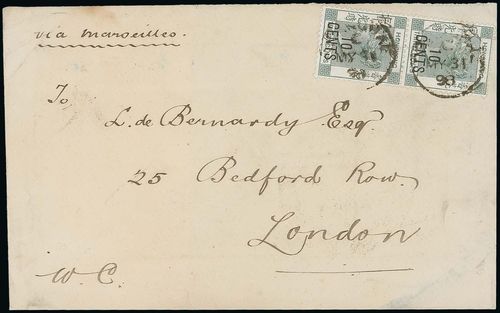 via Marseilles.
10
CENTS
10
CENTS
31
98
To
L. de Bernardy Esq.
25 Bedford Row.
London
W.C.